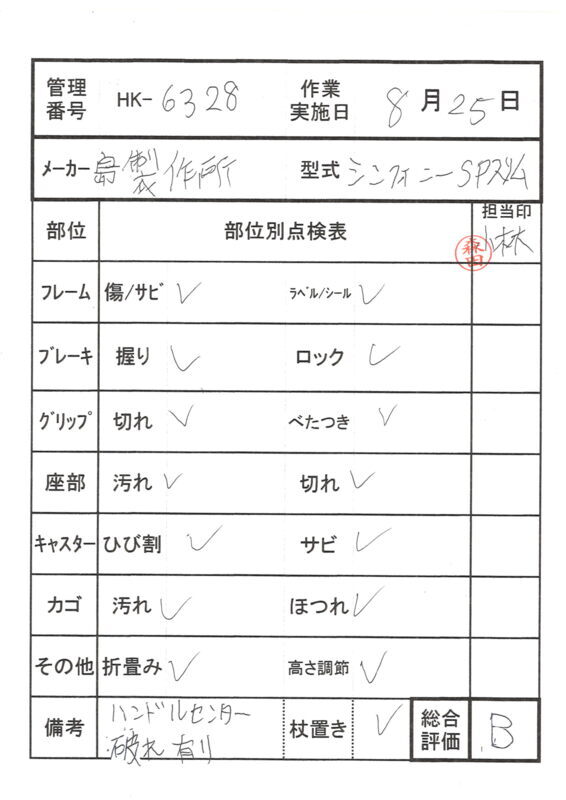 管理番号 HK-6328 作業実施日 8月25日
メーカー 島製作所 型式 シンフォニーSPスリム
部位 部位別点検表 担当印
小林 森田
フレーム 傷/サビ ✓ ラベル/シール ✓
ブレーキ 握り ✓ ロック ✓
グリップ 切れ ✓ べたつき ✓
座部 汚れ ✓ 切れ ✓
キャスター ひび割 ✓ サビ ✓
カゴ 汚れ ✓ ほつれ ✓
その他 折畳み ✓ 高さ調節 ✓
備考 ハンドルセンター 杖置き ✓ 総合評価 B
破れ有り